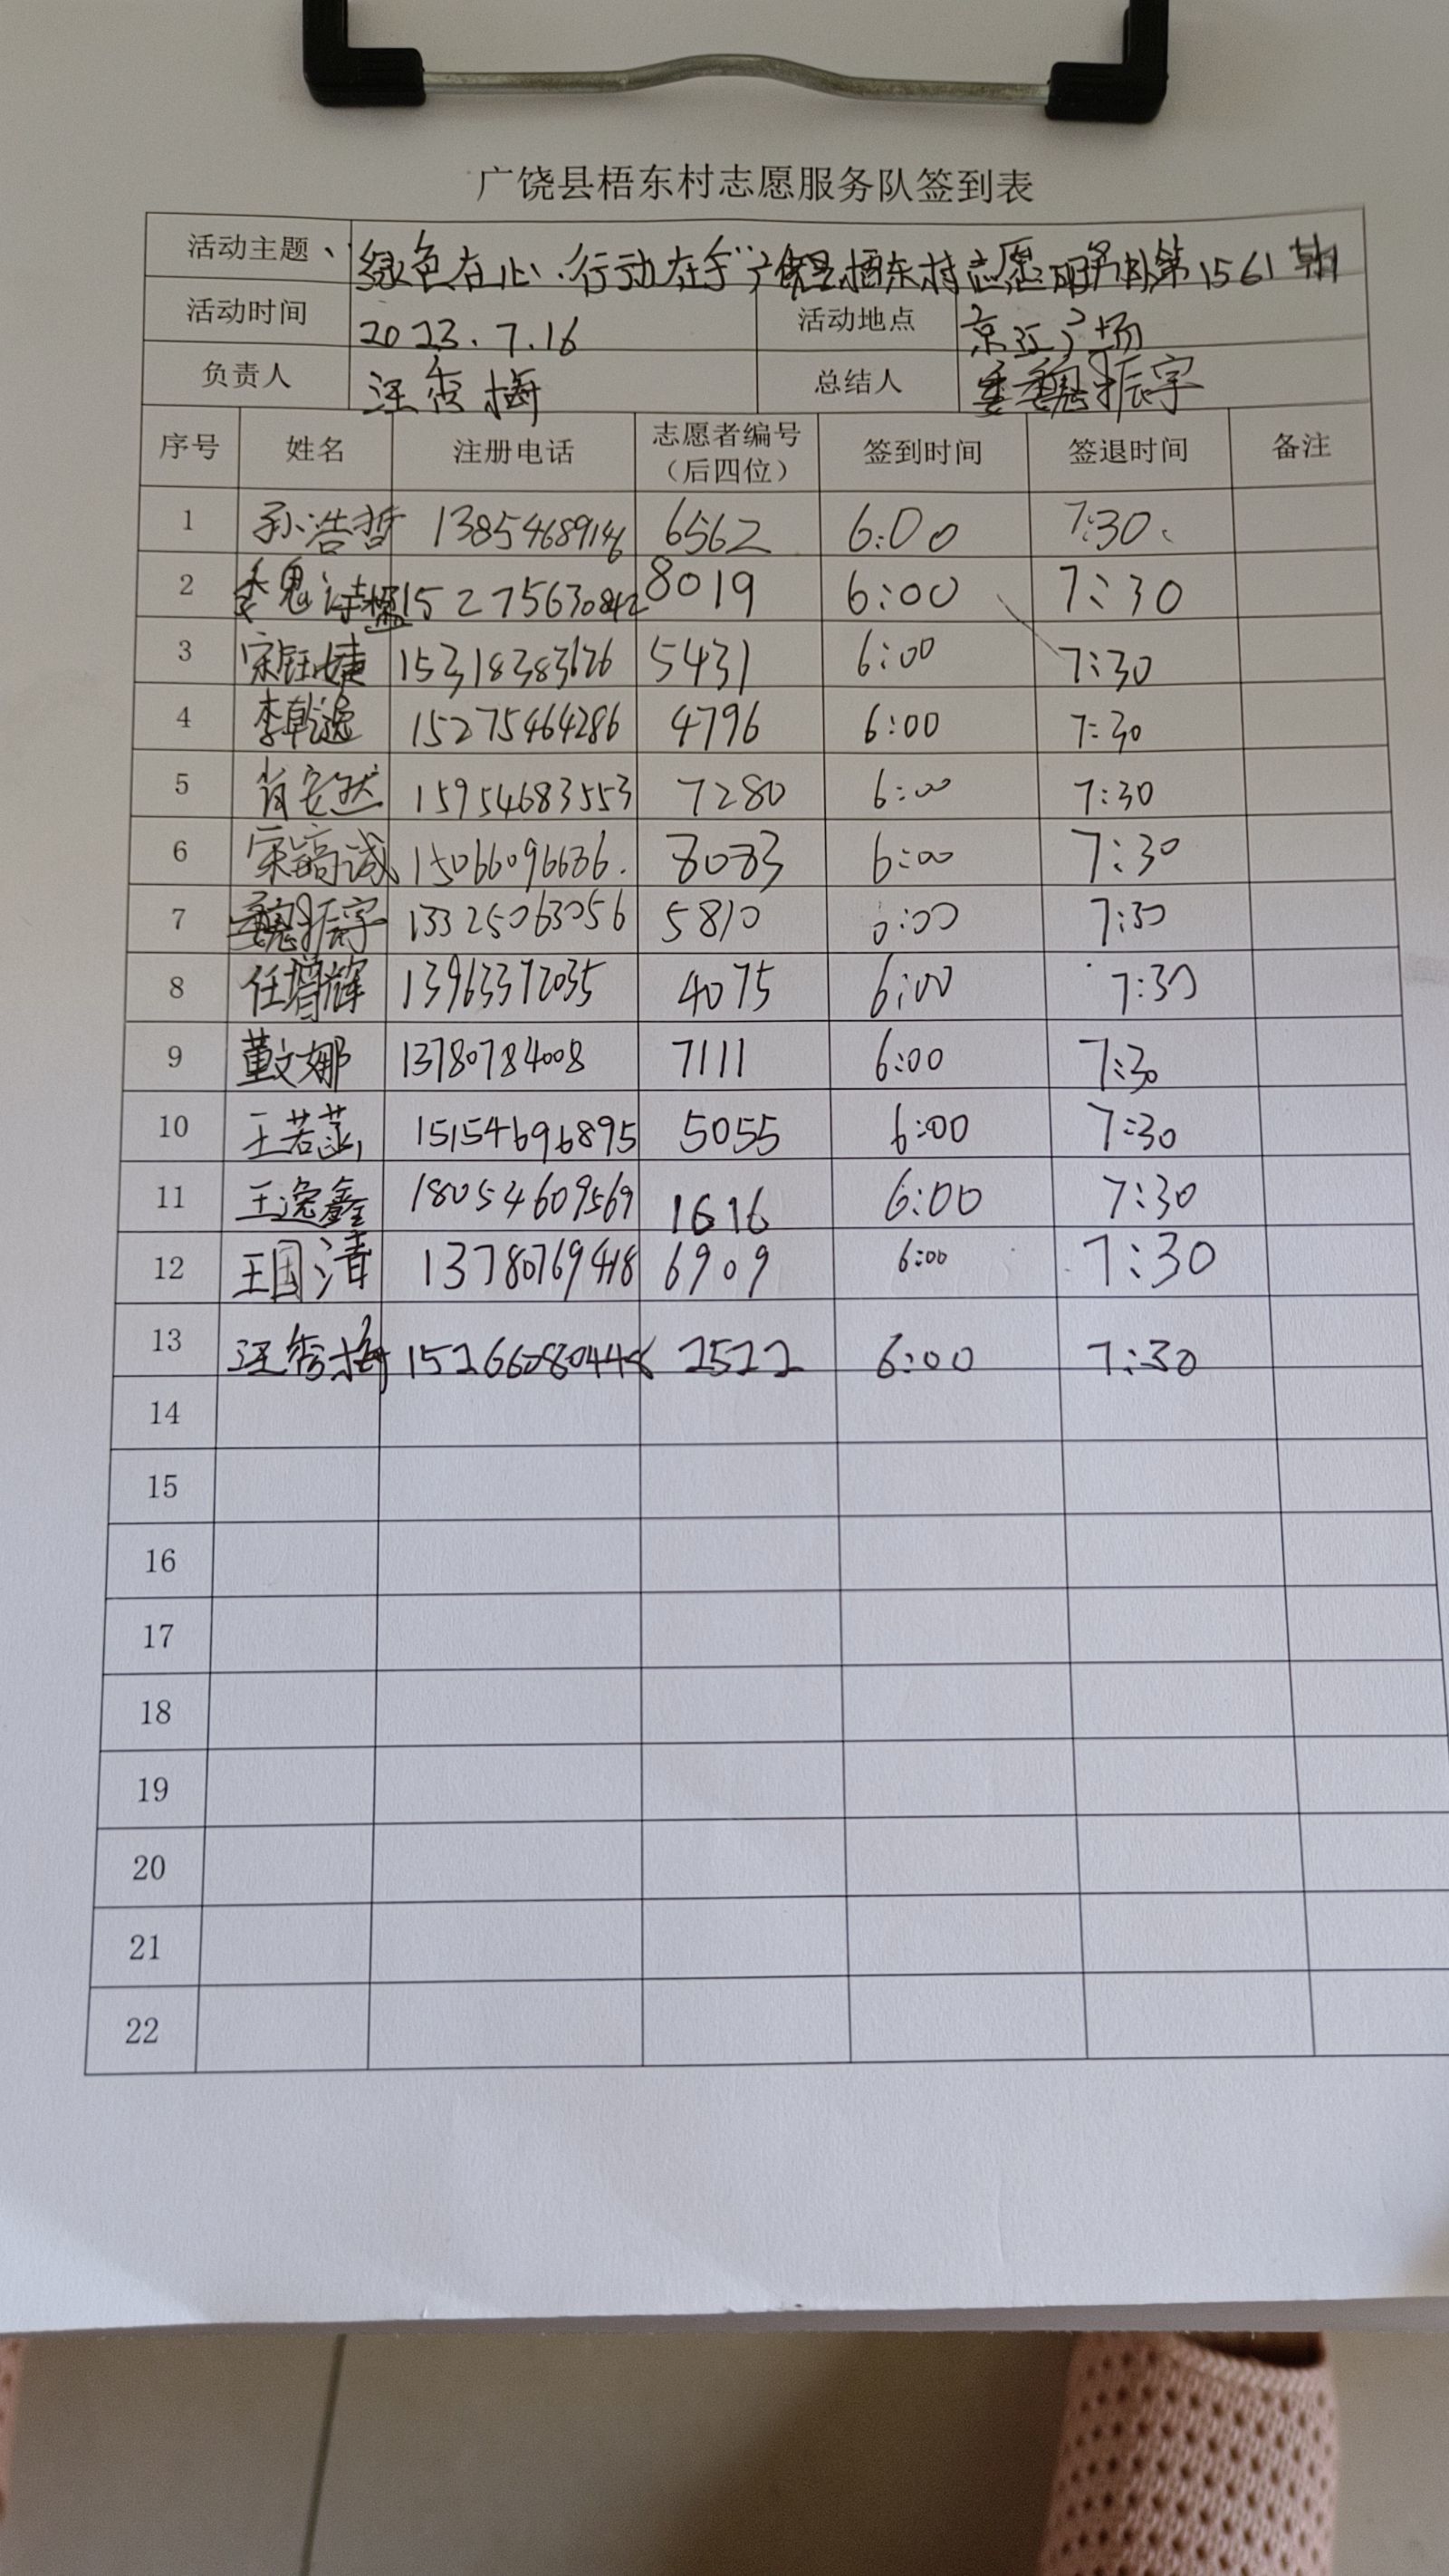 广饶县梧东村志愿服务队签到表
活动主题、"绿色在心、行动在手"广饶县梧东村志愿服务队第1561期
活动时间 2023.7.16 活动地点 广场
负责人 汪秀梅 总结人 魏振宇
序号 姓名 注册电话 志愿者编号（后四位） 签到时间 签退时间 备注
1 孙浩哲 6562 6:00 7:30
2 魏 8019 6:00 7:30
3 宋钰婕 15318383626 5431 6:00 7:30
4 李乾逸 15275464286 4796 6:00 7:30
5 肖安然 15954683553 7280 6:00 7:30
6 宋 诚 15066096686. 8083 6:00 7:30
7 魏振宇 13325063056 5810 6:00 7:30
8 任增辉 13963372035 4075 6:00 7:30
9 董文娜 13780784008 7111 6:00 7:30
10 王若菡 15154696895 5055 6:00 7:30
11 王逸鑫 18054609569 1616 6:00 7:30
12 王国清 13780769418 6909 6:00 7:30
13 汪秀梅 15266080448 2522 6:00 7:30
14
15
16
17
18
19
20
21
22